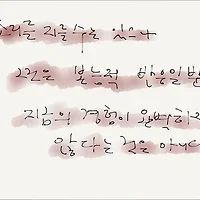 소리를 지를 수는 있으나
그것은 본능적 반응일 뿐
지금의 경험이 완벽하지
않다는 것은 아니